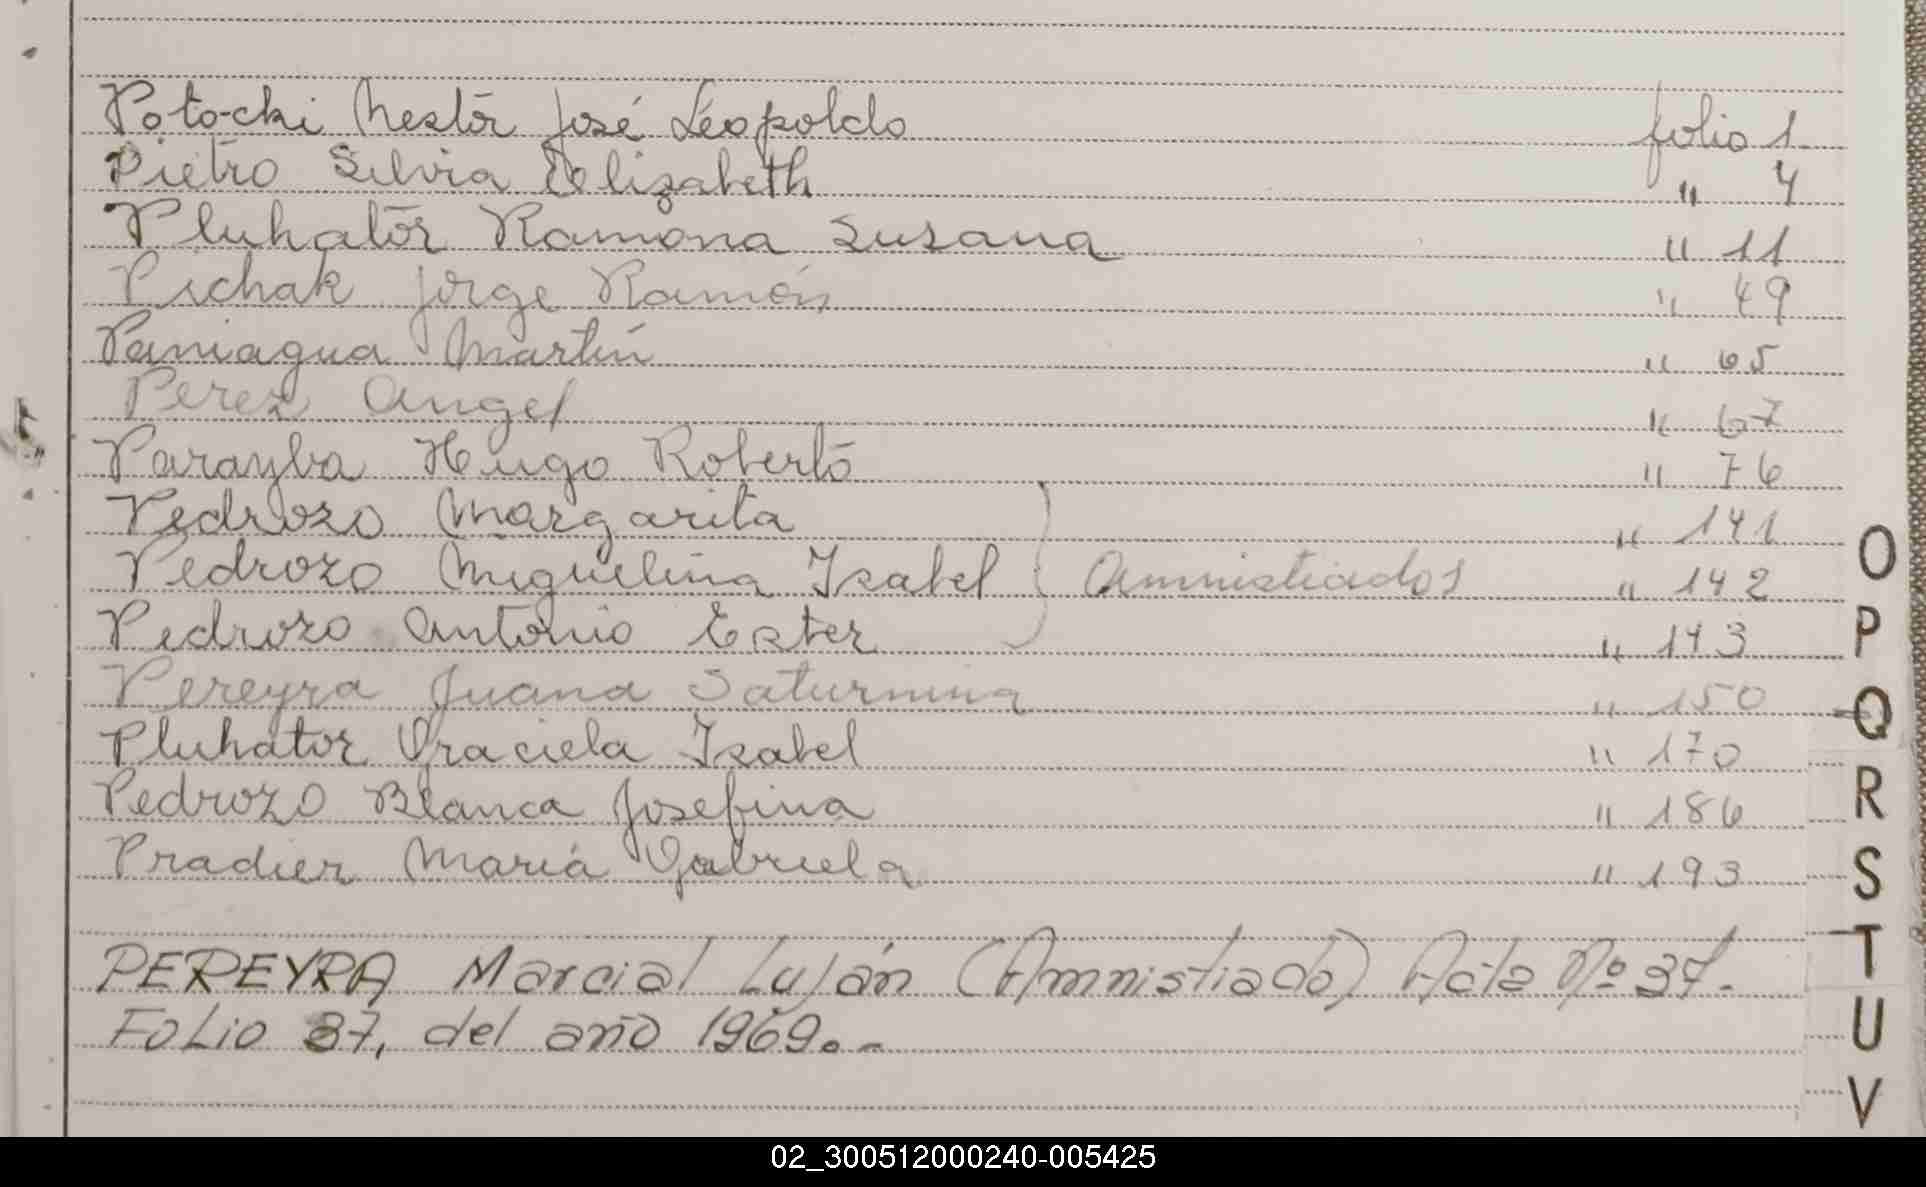 Potocki Nestor José Leopoldo folio 1
Pietro Silvia Elizabeth " 4
Pluhator Ramona Susana " 11
Pichak Jorge Ramón " 49
Paniagua Martín " 65
Perez Angel " 67
Parayba Hugo Roberto " 76
Pedrozo Margarita " 141
Pedrozo Miguelina Isabel } Amnistiados " 142
Pedrozo Antonio Ester " 143
Pereyra Juana Saturnina " 150
Pluhator Graciela Isabel " 170
Pedrozo Blanca Josefina " 186
Pradier María Gabriela " 193
PEREYRA Marcial Luján (Amnistiado) Acta Nº 37.
Folio 37, del año 1969.-
O
P
Q
R
S
T
U
V
02_300512000240-005425